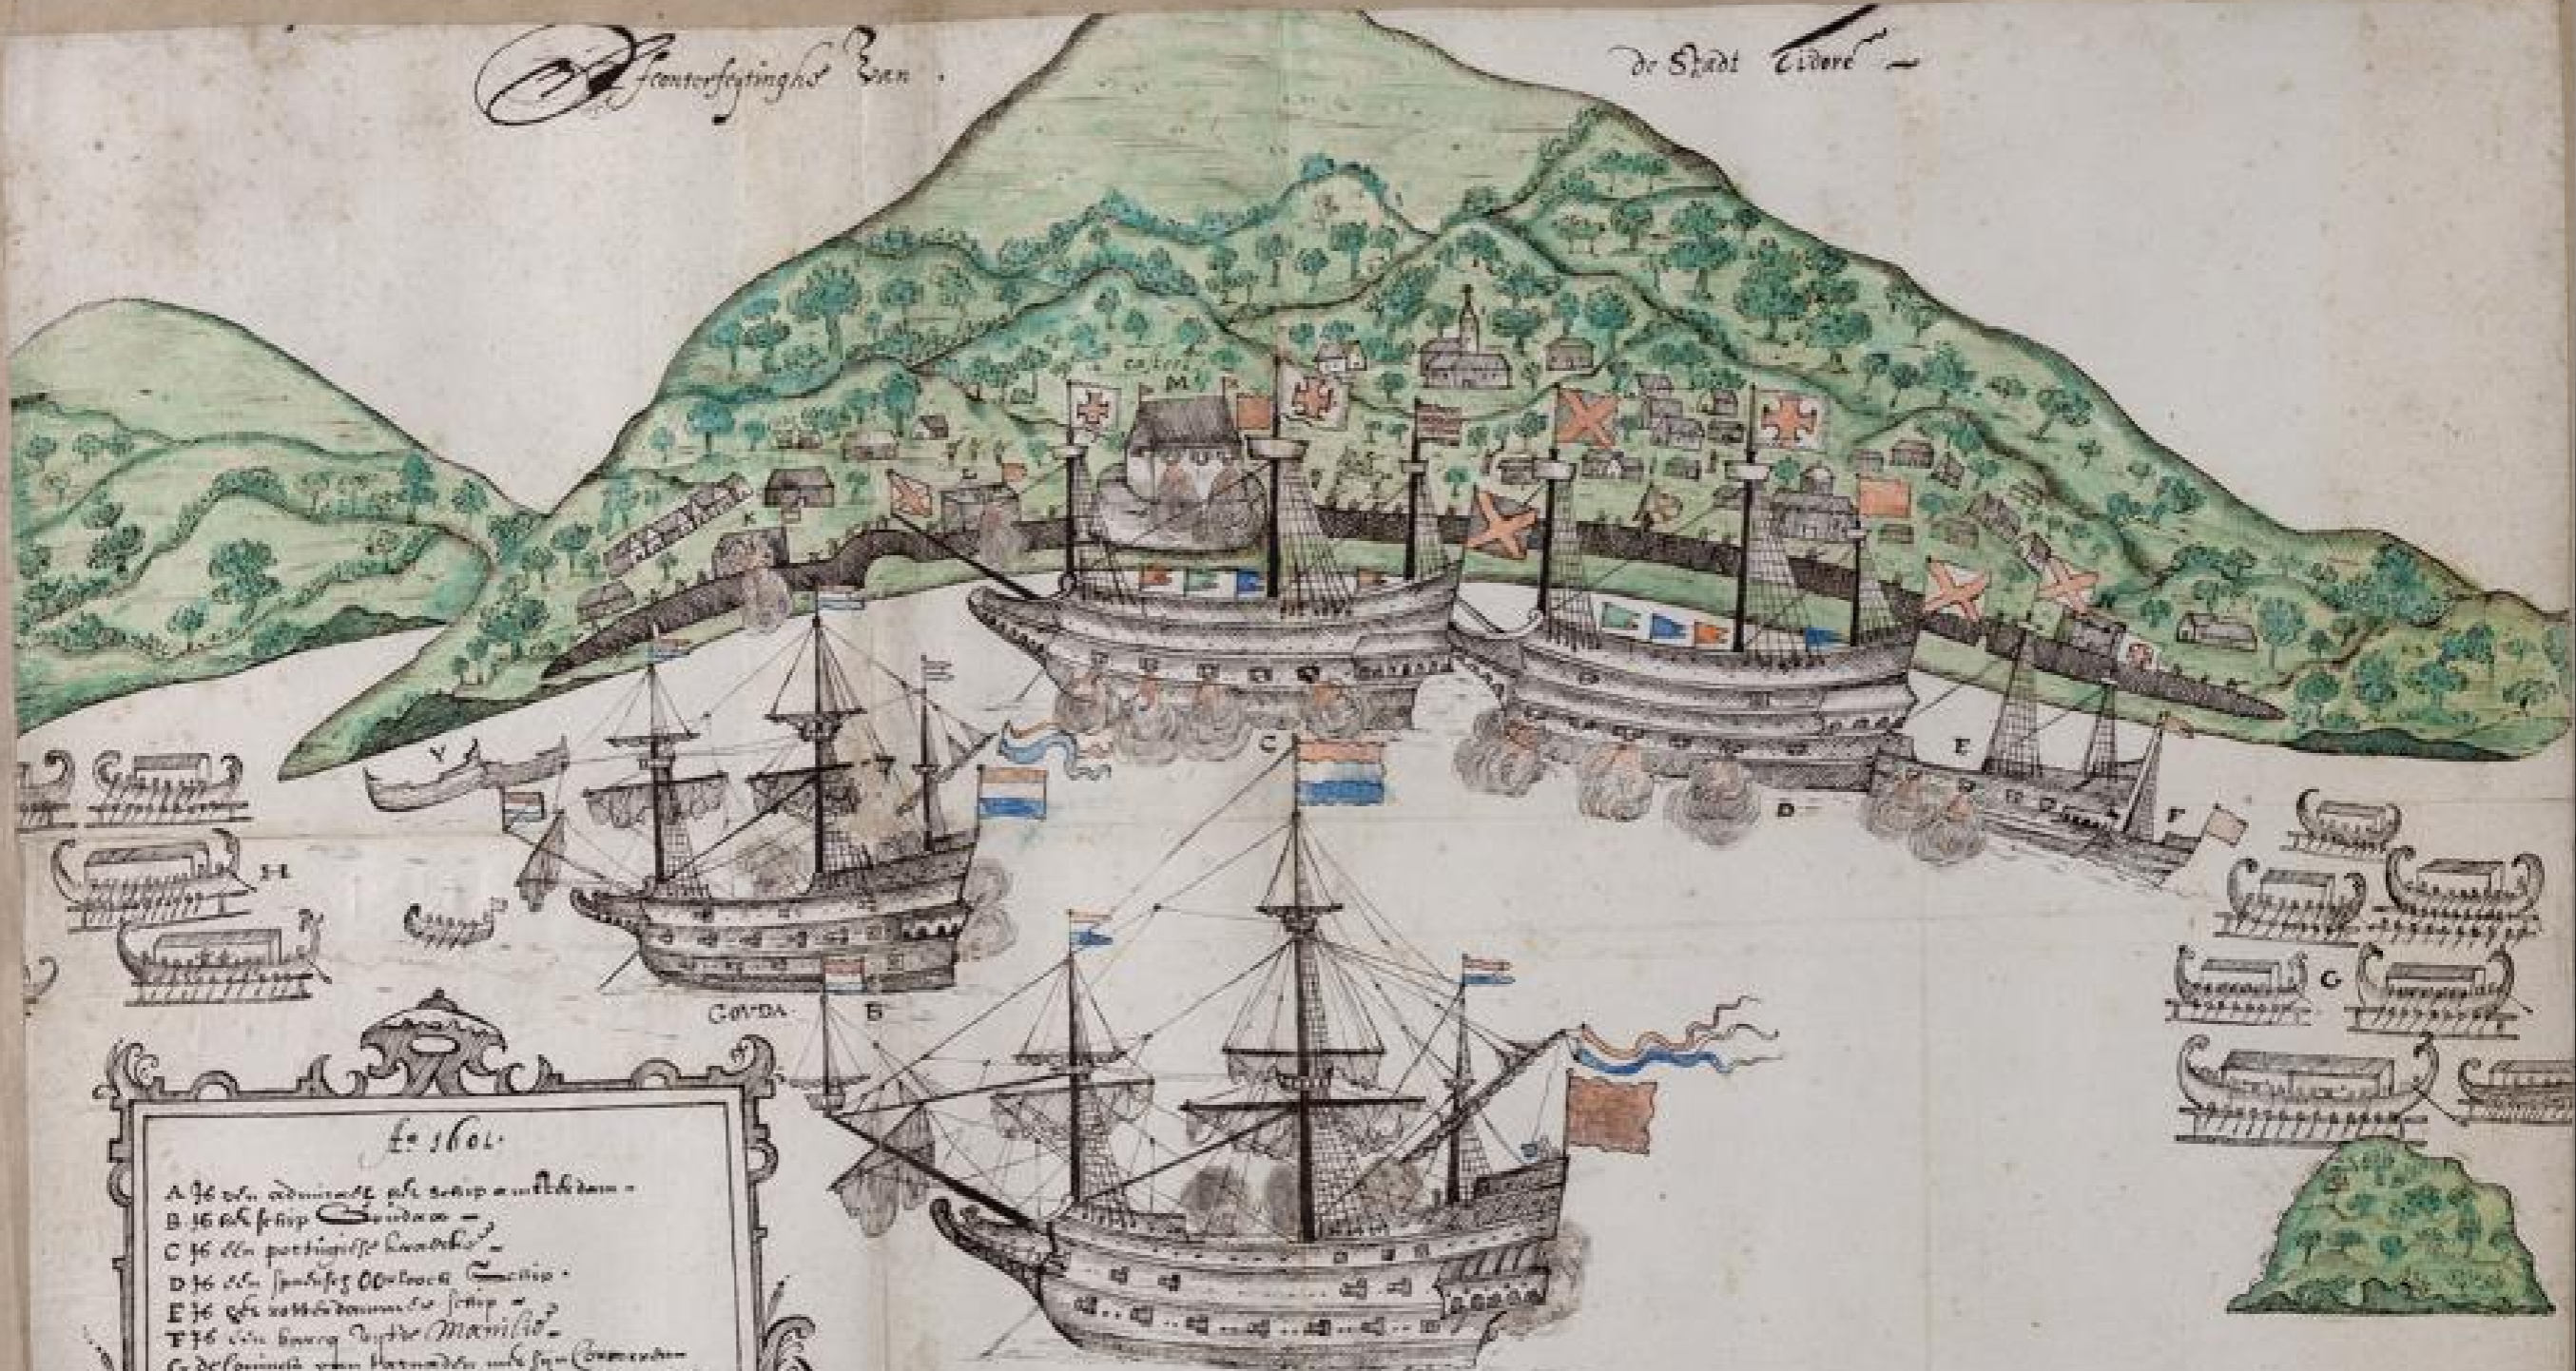 Afconterfeytinghe Van
de Stadt Tidore
casteel
M
L
K
Y
C
E
D
F
H
G
GOUDA B
Ao 1601.
A Is den admirael het schip amsterdam
B Is het schip Gouda
C Is een portugiese kraecke
D Is een spaensch Oorloch Schip.
E Is het rotterdammer schip
F Is een barcq uyt de Manilie
G de Coninck van tarnaden met syn Correcorren